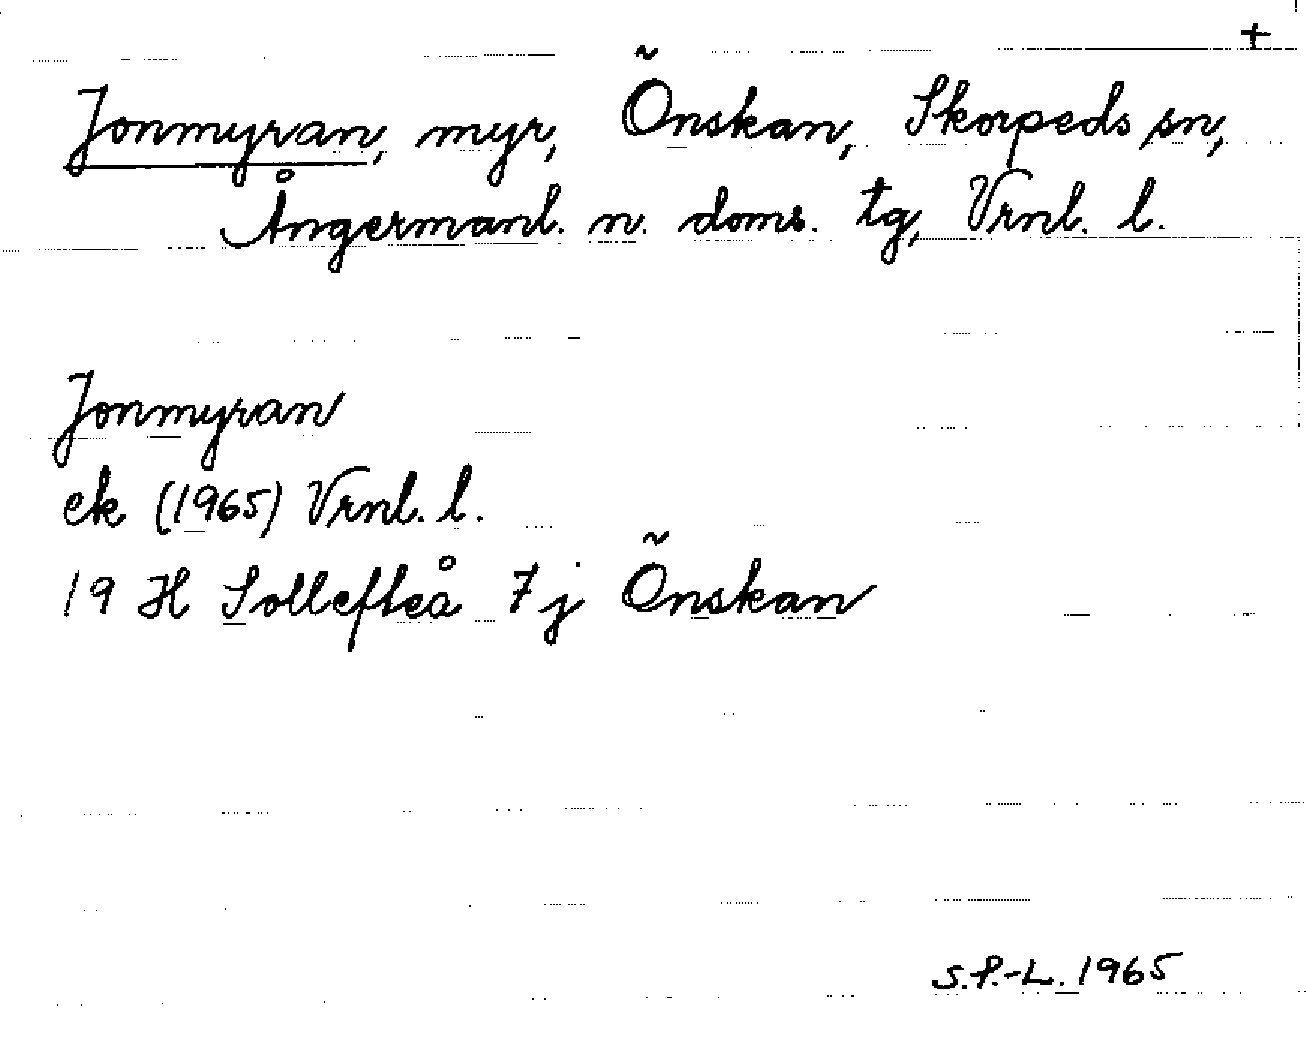 +
Jonmyran, myr, Önskan, Skorpeds sn,
Ångermanl. n. doms. tg, Vrnl. l.
Jonmyran
ek (1965) Vrnl. l.
19 H Sollefteå 7j Önskan
S.P.-L. 1965